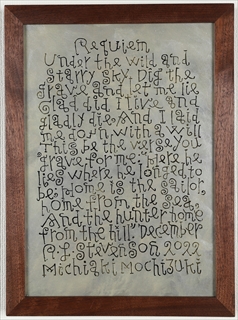 Requiem
Under the wild and
starry sky, Dig the
grave and let me lie
Glad did I live and
gladly die, And I laid
me down with a will
This be the verse you
grave for me: Here he
lies where he longed to
be, Home is the sailor,
home from the sea,
And the hunter home
from the hill. December
R.L. Stevenson 2022
Michiaki Mochizuki